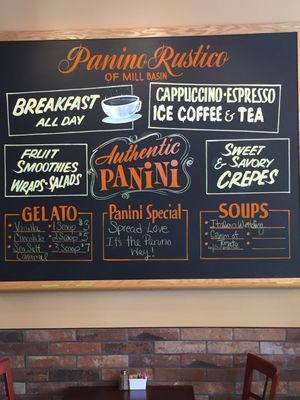 Panino Rustico
OF MILL BASIN
BREAKFAST
ALL DAY
CAPPUCCINO·ESPRESSO
ICE COFFEE & TEA
FRUIT
SMOOTHIES
WRAPS·SALADS
Authentic
PANINI
SWEET
& SAVORY
CREPES
GELATO
Vanilla 1 Scoop $3
Chocolate 2 Scoop $5
Sea Salt 3 Scoop $7
Caramel
Panini Special
Spread Love
It's the Panino
Way!
SOUPS
Italian Wedding
Cream of